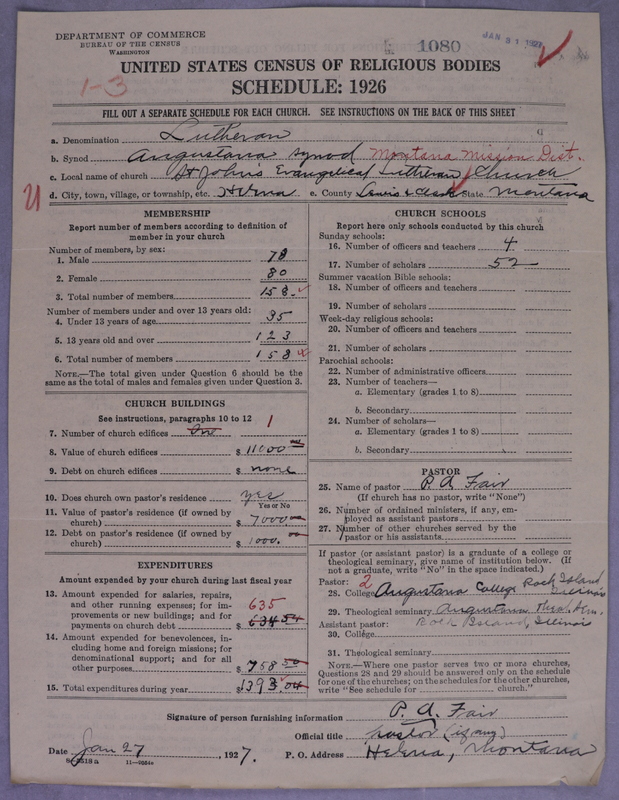 DEPARTMENT OF COMMERCE
BUREAU OF THE CENSUS
WASHINGTON
1080
JAN 31 1927
UNITED STATES CENSUS OF RELIGIOUS BODIES
SCHEDULE: 1926
1-3
FILL OUT A SEPARATE SCHEDULE FOR EACH CHURCH. SEE INSTRUCTIONS ON THE BACK OF THIS SHEET
a. Denomination Lutheran
b. Synod Augustana Synod Montana Mission Dist.
c. Local name of church St Johns Evangelical Lutheran Church
U
d. City, town, village, or township, etc. Helena e. County Lewis & Clark State Montana
MEMBERSHIP
Report number of members according to definition of
member in your church
Number of members, by sex:
1. Male 78
2. Female 80
3. Total number of members 158.
Number of members under and over 13 years old:
4. Under 13 years of age 35
5. 13 years old and over 123
6. Total number of members 158
NOTE.—The total given under Question 6 should be the
same as the total of males and females given under Question 3.
CHURCH BUILDINGS
See instructions, paragraphs 10 to 12
7. Number of church edifices 1
8. Value of church edifices $ 11000
9. Debt on church edifices $ none
10. Does church own pastor's residence yes
Yes or No
11. Value of pastor's residence (if owned by
church) $ 7000.00
12. Debt on pastor's residence (if owned by
church) $ 1000.00
EXPENDITURES
Amount expended by your church during last fiscal year
13. Amount expended for salaries, repairs,
and other running expenses; for im-
provements or new buildings; and for
payments on church debt 635 $ 634 54
14. Amount expended for benevolences, in-
cluding home and foreign missions; for
denominational support; and for all
other purposes $ 758 50
15. Total expenditures during year $ 1393.04
CHURCH SCHOOLS
Report here only schools conducted by this church
Sunday schools:
16. Number of officers and teachers 4
17. Number of scholars 52
Summer vacation Bible schools:
18. Number of officers and teachers
19. Number of scholars
Week-day religious schools:
20. Number of officers and teachers
21. Number of scholars
Parochial schools:
22. Number of administrative officers
23. Number of teachers—
a. Elementary (grades 1 to 8)
b. Secondary
24. Number of scholars—
a. Elementary (grades 1 to 8)
b. Secondary
PASTOR
25. Name of pastor P. A. Fair
(If church has no pastor, write "None")
26. Number of ordained ministers, if any, em-
ployed as assistant pastors
27. Number of other churches served by the
pastor or his assistants
If pastor (or assistant pastor) is a graduate of a college or
theological seminary, give name of institution below. (If
not a graduate, write "No" in the space indicated.)
Pastor: 2
28. College Augustana College Rock Island Illinois
29. Theological seminary Augustana Theo. Sem.
Assistant pastor: Rock Island, Illinois
30. College
31. Theological seminary
NOTE.—Where one pastor serves two or more churches,
Questions 28 and 29 should be answered only on the schedule
for one of the churches; on the schedules for the other churches,
write "See schedule for church."
Signature of person furnishing information P. A. Fair
Official title pastor
Date Jan 27, 1927. P. O. Address Helena, Montana
8-2518a 11-9504a